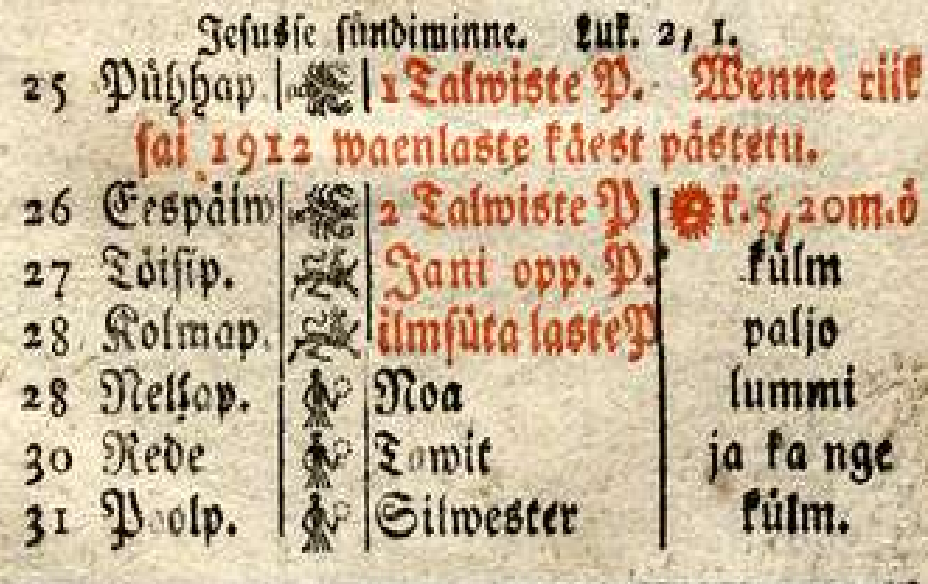 Jesusse sündiminne. Luk. 2, 1.
25 Pühhap 1 Talwiste P. Wenne riik
sai 1912 waenlaste käest pästetu.
26 Eespäiw 2 Talwiste P k. 5, 20 m. ö
27 Töisip. Jani opp. P. külm
28 Kolmap. ilmsüta laste P paljo
28 Neljap. Noa lummi
30 Rede Towit ja ka nge
31 Poolp. Silwester külm.